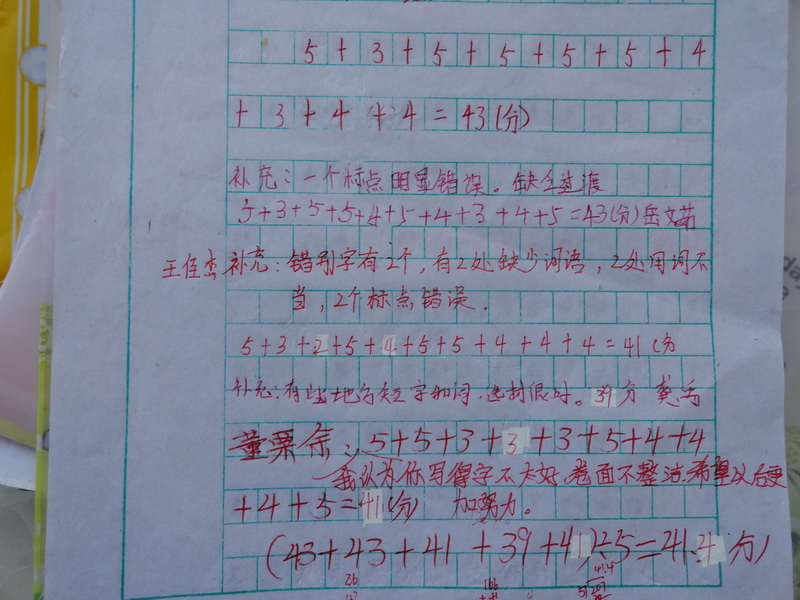 5+3+5+5+5+5+4
+3+4+4=43(分)
补充:一个标点明显错误。缺乏过渡
5+3+5+5+4+5+4+3+4+5=43(分)岳文茹
王佳杰补充:错别字有2个,有2处缺少词语,2处用词不
当,2个标点错误.
5+3+2+5+4+5+5+4+4+4=41(分
补充:有些地方 字和词. 39分 龚
董栗余:5+5+3+3+3+5+4+4
我认为你写得字不太好.卷面不整洁.希望以后更
+4+5=41(分) 加努力。
(43+43+41+39+41)÷5=41.4分)
41.4